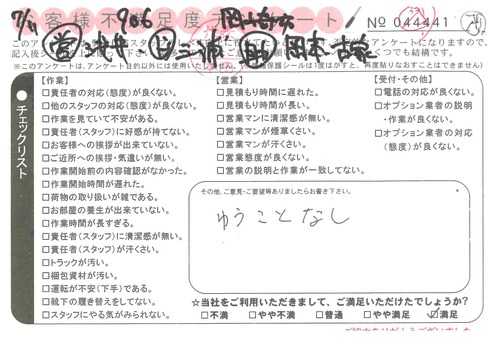 7/11 906 岡山
客様不満足度アンケート No 044441
営 浅井
※このアンケートは、アンケート目的以外には使用いたしません。
チェックリスト
【作業】
□責任者の対応(態度)が良くない。
□他のスタッフの対応(態度)が良くない。
□作業を見ていて不安がある。
□責任者(スタッフ)に好感が持てない。
□お客様への挨拶が出来ていない。
□ご近所への挨拶・気遣いが無い。
□作業開始前の内容確認がなかった。
□作業開始時間が遅れた。
□荷物の取り扱いが雑である。
□お部屋の養生が出来ていない。
□作業時間が長すぎる。
□責任者(スタッフ)に清潔感が無い。
□責任者(スタッフ)が汗くさい。
□トラックが汚い。
□梱包資材が汚い。
□運転が不安(下手)である。
□靴下の履き替えをしてない。
□スタッフにやる気がみられない。
【営業】
□見積もり時間に遅れた。
□見積もり時間が長い。
□営業マンに清潔感が無い。
□営業マンが煙草くさい。
□営業マンが汗くさい。
□営業態度が良くない。
□営業の説明と作業が一致してない。
【受付・その他】
□電話の対応が良くない。
□オプション業者の説明
・作業が良くない。
□オプション業者の対応
(態度)が良くない。
その他、ご意見・ご要望等ありましたらお書き下さい。
ゆうことなし
☆当社をご利用いただきまして、ご満足いただけたでしょうか?
□不満 □やや不満 □普通 □やや満足 ☑満足